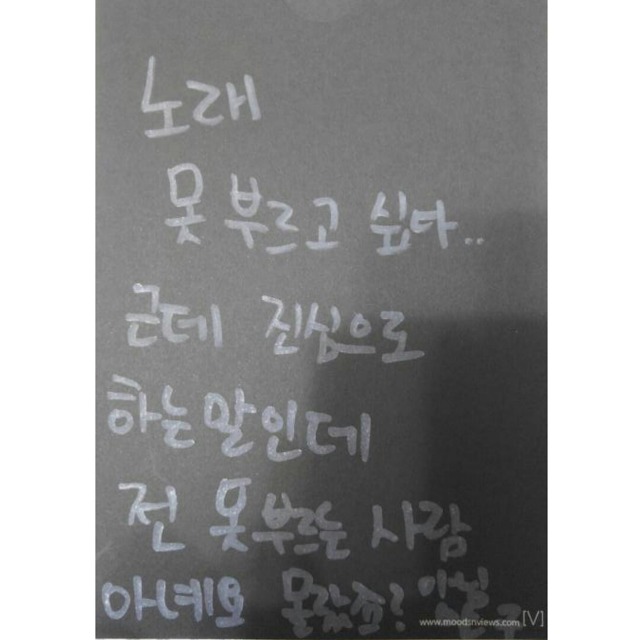 노래
못 부르고 싶다..
근데 진심으로
하는말인데
전 못부르는 사람
아녜요 몰랐죠?
www.moodsnviews.com [V]